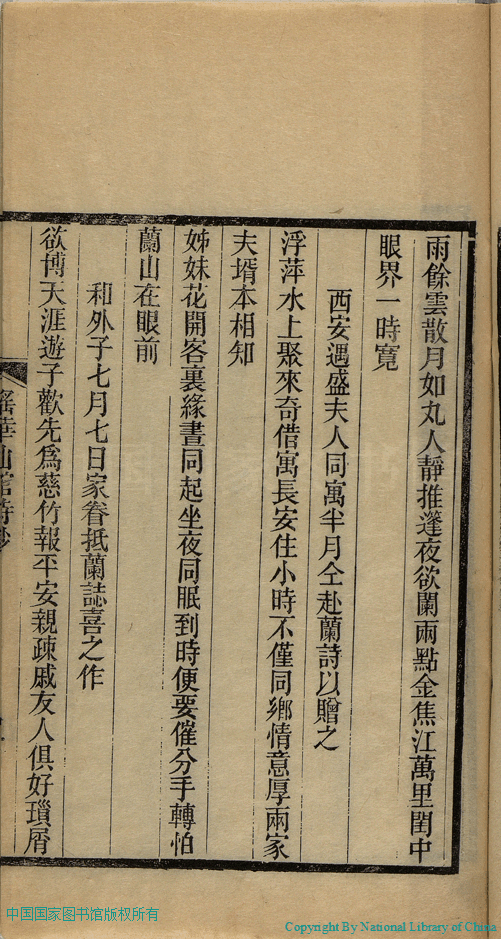 雨餘雲散月如丸人靜推篷夜欲闌兩點金焦江萬里閨中
眼界一時寬
西安遇盛夫人同寓半月仝赴蘭詩以贈之
浮萍水上聚來奇借寓長安住小時不僅同鄉情意厚兩家
夫壻本相知
姊妹花開客裏緣晝同起坐夜同眠到時便要催分手轉怕
蘭山在眼前
和外子七月七日家眷抵蘭誌喜之作
欲博天涯遊子歡先爲慈竹報平安親疎戚友人俱好瑣屑
華山館詩鈔
中国国家图书馆版权所有
Copyright By National Library of China